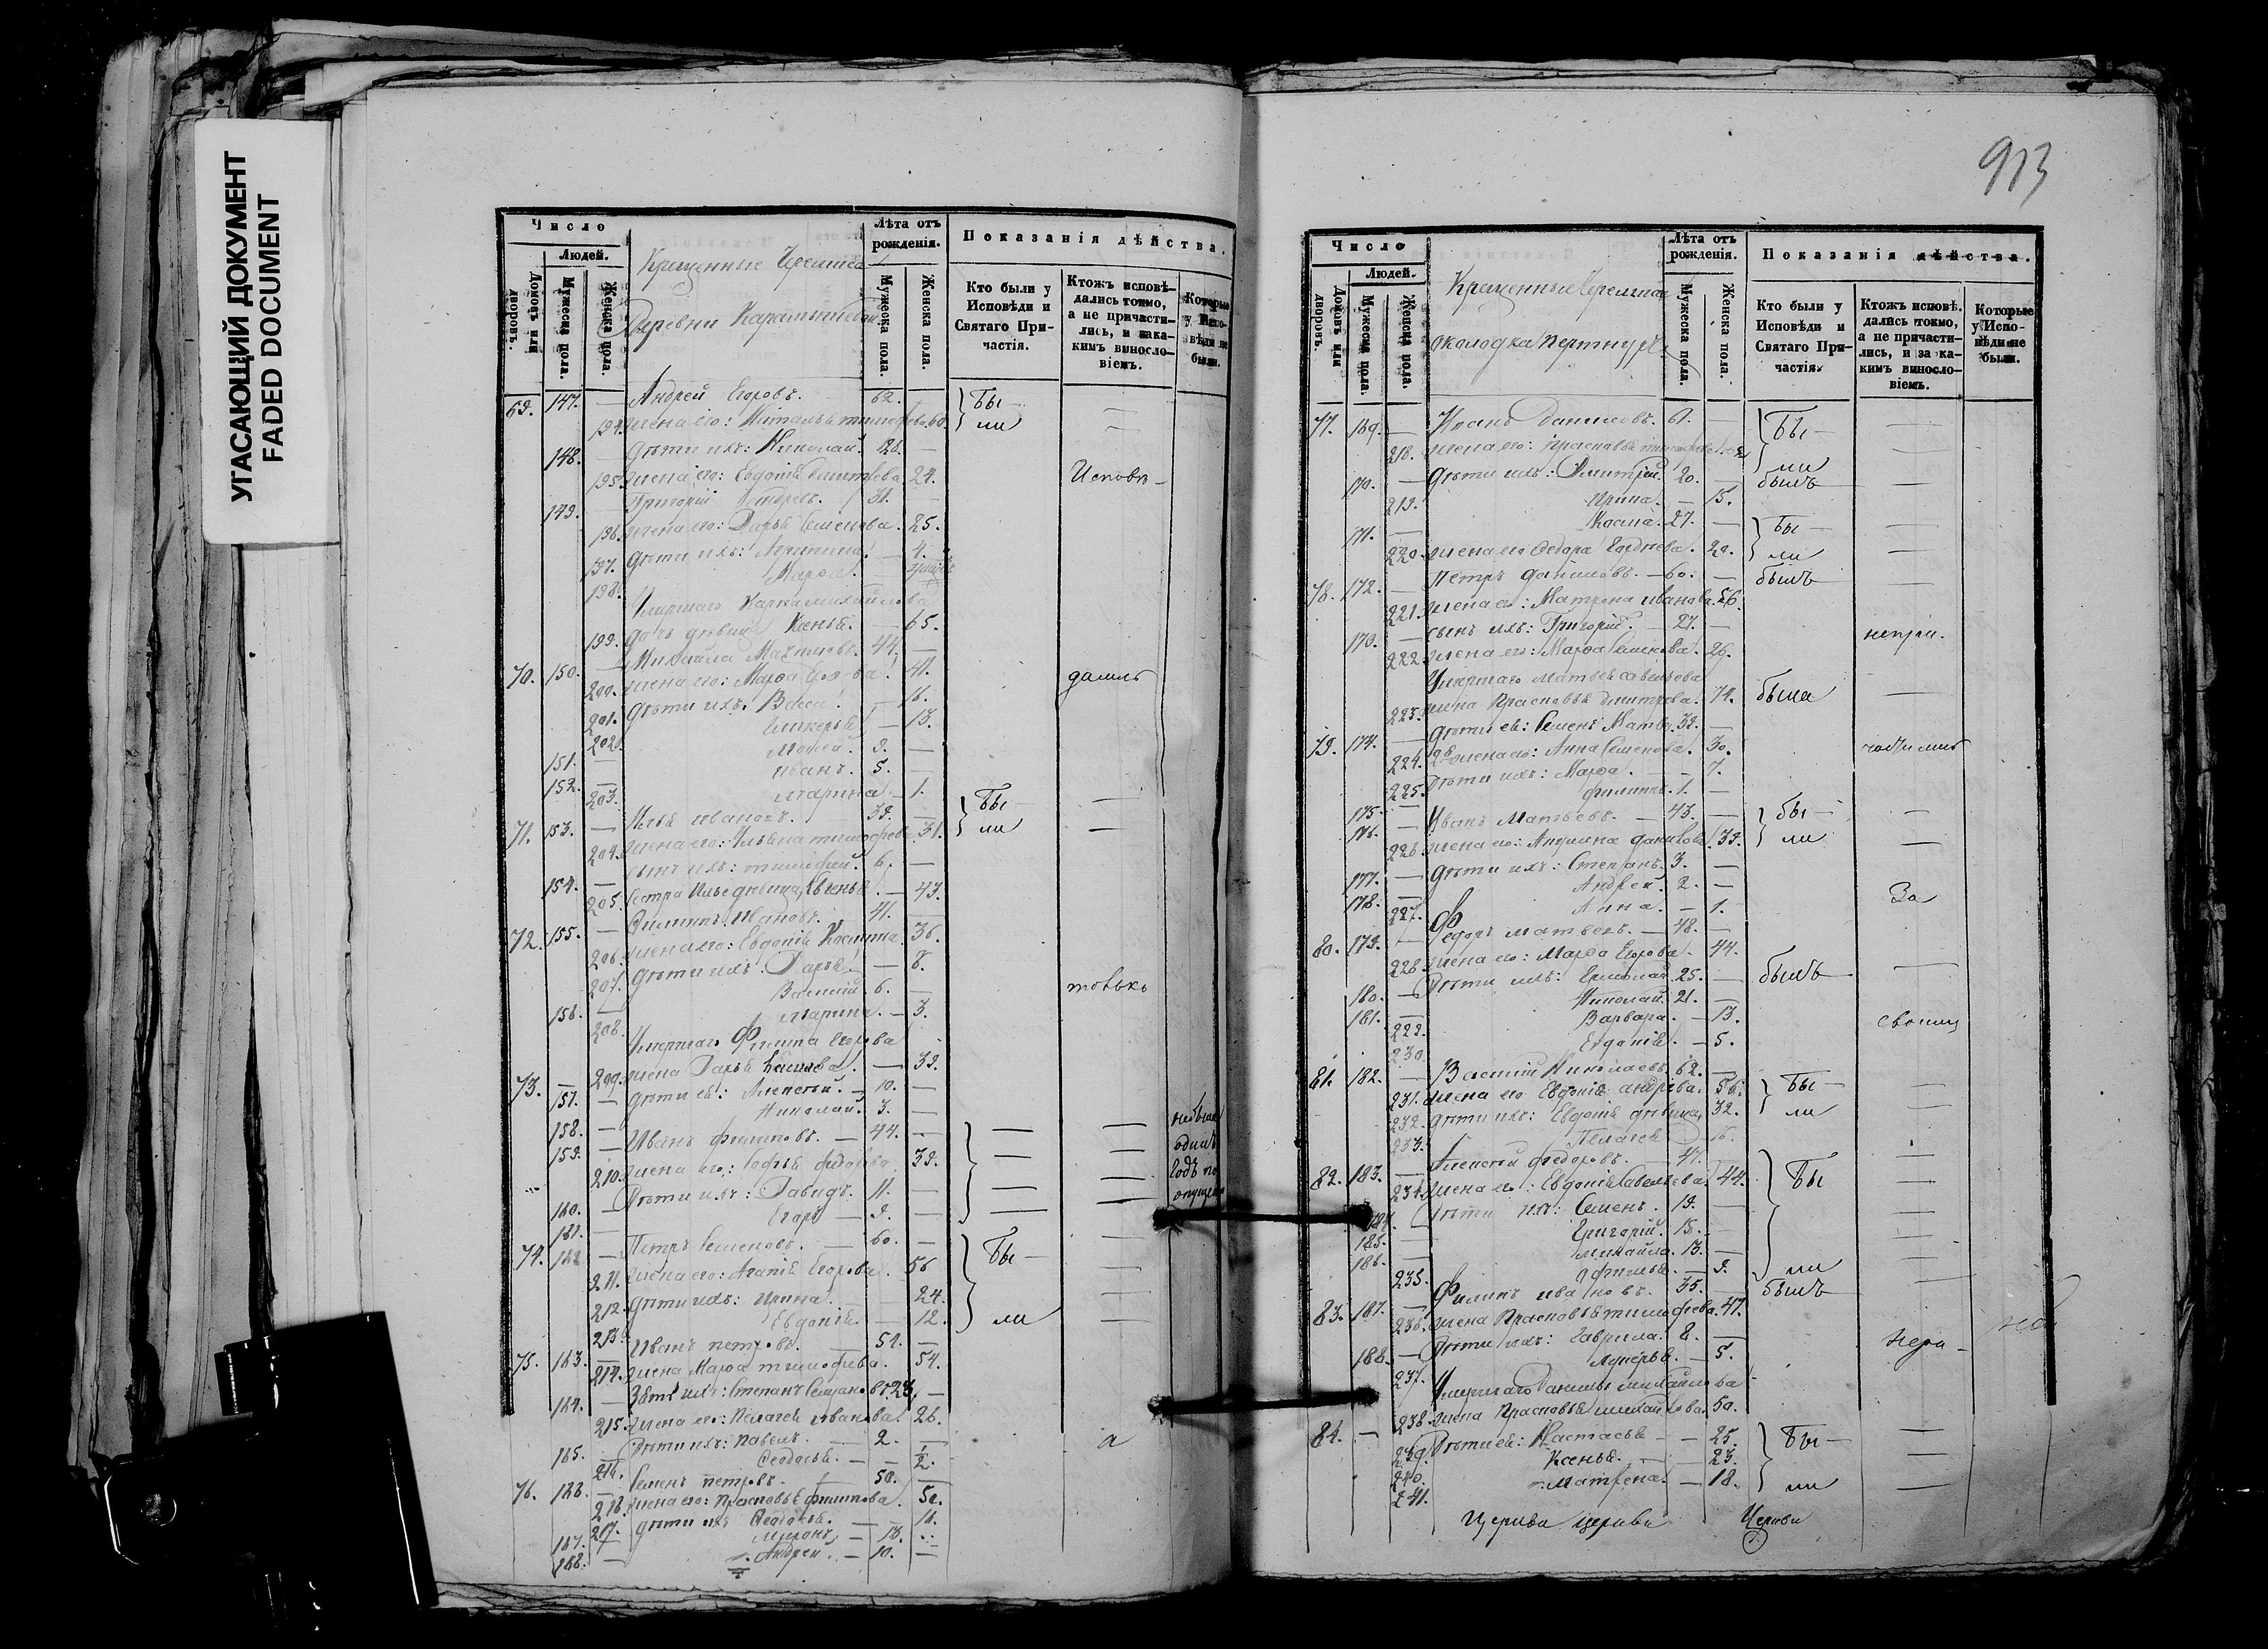 УГАСАЮЩИЙ ДОКУМЕНТ
FADED DOCUMENT
Число
Людей.
Домовъ или дворовъ.
Мужеска пола.
Женска пола.
Крещенные Черемисы
Деревни
Лѣта отъ рожденія.
Мужеска пола.
Женска пола.
Показанія дѣйства.
Кто были у Исповѣди и Святаго Причастія.
Ктожъ исповѣдались токмо, а не причастились, и за какимъ винословіемъ.
Которые у Исповѣди не были.
69. 147. — Андрей Егоровъ. 62. Бы—
194. жена его: тимофеева 60. ли
148. — дѣти ихъ: Николай. 26. —
195. жена его: Евдокія 24. Исповѣ-
149. Григорій Андреевъ. 31. —
196. жена его: Дарья Семенова. 25.
197. дѣти ихъ: Агрипина. — 4.
198. Марѳа.
Умершаго Михайлова
199. дочь дѣвица Ксенья. — 65.
Михайла 44. —
70. 150. 200. жена его: Марѳа 41. дались
201. дѣти ихъ: Васса. — 16.
202. Гликерья — 13.
151. — Моисей. 9. —
152. — Иванъ. 5. —
203. Марина — 1.
71. 153. — Илья Ивановъ. 39. — Бы—
204. жена его: Ульяна тимофеева. 31. ли
154. — сынъ ихъ: тимофей. 6. —
205. сестра Ильи дѣвица — 43.
72. 155. — Филиппъ Ивановъ. 41. —
206. жена его: Евдокія Косьмина. 36.
207. дѣти ихъ: Дарья. — 8.
156. — Василій. 6. — только
208. Марина. — 3.
Умершаго Егорова
73. — 209. жена Дарья — 39.
157. — дѣти ея: Алексѣй. — 10. —
158. — Николай. 3. — не были
159. — Иванъ Филиповъ. — 44. — одинъ
210. жена его: Софья Федорова 39. годъ по
160. — Дѣти ихъ: Давидъ. 11. — опущен
161. — Егоръ — 9. —
74. 162 — Петръ Семеновъ. — 60. — Бы—
211. жена его: Агапія Егорова. 56
212. дѣти ихъ: Ирина. 24.
213. Евдокія. — 12. ли
75. 163. — Иванъ петровъ. 51. —
214. жена Марѳа тимофеева. 54.
164. — Зять ихъ: Степанъ 27. —
215. жена его: Пелагея иванова. 26.
165. — Дѣти ихъ: Павелъ. — 2. — а
216. Ѳеодосья. — — ½.
76. 166. — Семенъ петровъ. — 50. —
216. жена его: Прасковья филипова. 50.
217. дѣти ихъ Ѳеодосья. — 11.
167. — Миронъ, — 13.
168. — Андрей. — 10. —
913
Число
Людей.
Домовъ или дворовъ.
Мужеска пола.
Женска пола.
Крещенные Черемисы
околодка Пертнуръ
Лѣта отъ рожденія.
Мужеска пола.
Женска пола.
Показанія дѣйства.
Кто были у Исповѣди и Святаго Причастія.
Ктожъ исповѣдались токмо, а не причастились, и за какимъ винословіемъ.
Которые у Исповѣди не были.
77. 169. — Іоаннъ Даниловъ. 61. — Бы—
218. жена его: Прасковья тимофеева 62 ли
170. — дѣти ихъ: Димитрій. 20. — былъ
219. Ирина. — 15.
171. — Косма. 27. — Бы—
220. жена его Федора 29. ли
78. 172. — Петръ даниловъ. — 60. — былъ
221. жена его: Матрона иванова 56.
173. — сынъ ихъ: Григорій. — 27. — непри.
222. жена его: Марѳа Семенова. 26.
Умершаго Матвея савельева
223. жена Прасковья дмитріева. 74. была
79. 174. — дѣти ея: Семенъ Матв. 39. —
224. жена его: Анна Семенова. 30. частились
225. Дѣти ихъ: Марѳа. — 7.
175. — филипъ. 1. —
176. — Иванъ Матвеевъ. — 43. — бы—
226. жена его: данилова. 39. ли
177. — дѣти ихъ: Степанъ. 3. —
178. — Андрей. 2. —
227. Анна. — 1. За
80. 179. — Федоръ Матвеевъ. — 48. —
228. жена его: Марѳа Егорова. 44.
180. — Дѣти ихъ: Ермолай. 25. — былъ
181. — Николай. 21. —
229. Варвара. — 13. своими
230. Евдокія. — 5.
81. 182. — Василій Николаевъ. 62. — Бы—
231. жена его Евдокія андреева. 56.
232. дѣти ихъ: Евдокія дѣвица, 32. ли
233. Пелагея — 16.
82. 183. — Алексѣй Федоровъ. — 47. — Бы
234. жена его: Евдокія Савельева. 44.
184. — Дѣти ихъ: Семенъ. 19. —
185. — Григорій. 15. —
186. — Михайло. 13. —
235. — 9. ли
83. 187. — Филипъ ивановъ. 35. — былъ
236. жена Прасковья тимофеева. 47.
188. — Дѣти ихъ: Гаврила. 8. — нера-
237. Лукерья. — 5.
Умершаго Данилы михайлова
84. — 238. жена Прасковья михайлова. 50.
239. Дѣти ея: Настасья — — 25. Бы—
240. Ксенья. — — 23.
241. Матрена. — 18. ли